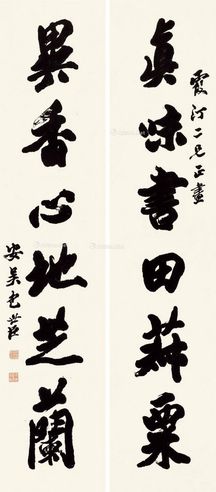 霞汀二兄正畫
眞味書田菽粟
異香心地芝蘭
安吳包世臣